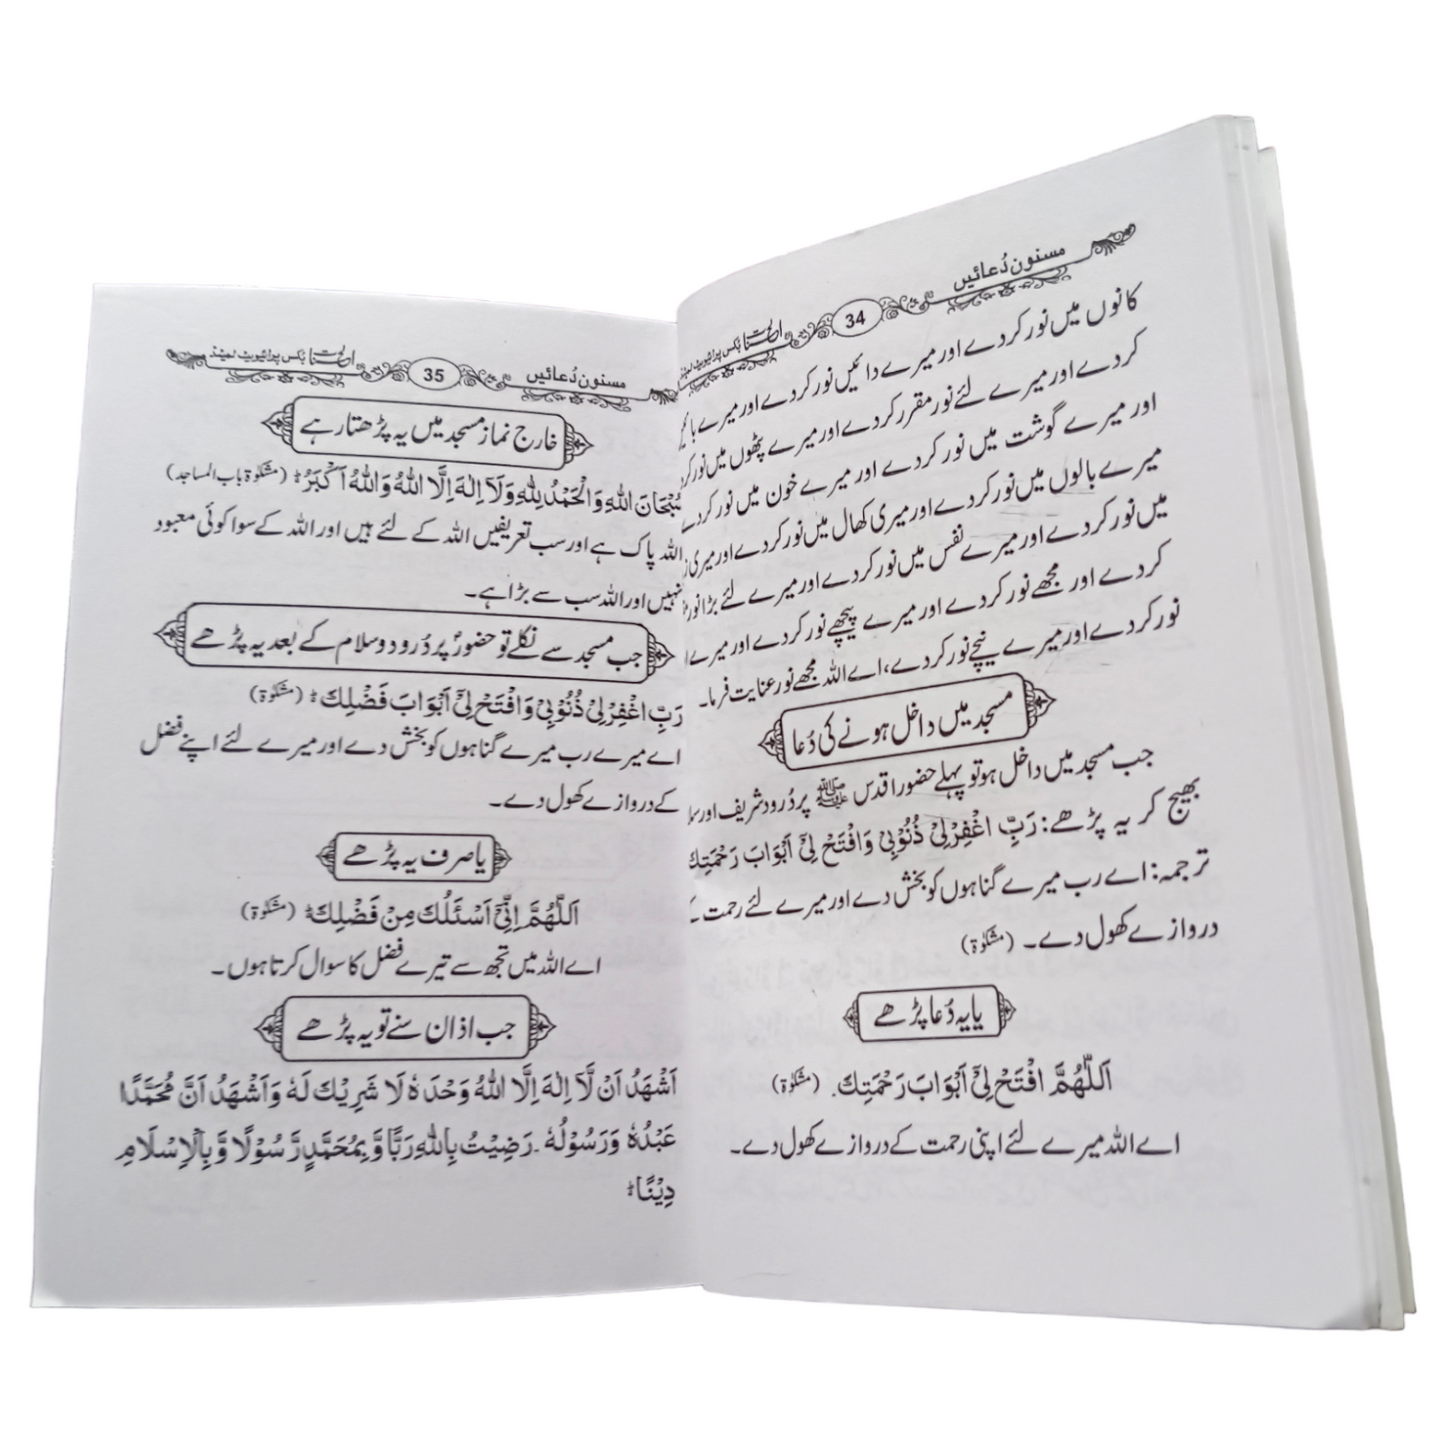 مسنون دُعائیں
34
بکس پرائیویٹ لمیٹڈ
کانوں میں نور کردے اور میرے دائیں نور کردے اور میرے
کردے اور میرے لئے نور مقرر کردے اور میرے پٹھوں میں نور
اور میرے گوشت میں نور کردے اور میرے خون میں نور کردے
میرے بالوں میں نور کردے اور میری کھال میں نور کردے اور میری
میں نور کردے اور میرے نفس میں نور کردے اور میرے لئے بڑا نور
کردے اور مجھے نور کردے اور میرے پیچھے نور کردے اور میرے
نور کردے اور میرے نیچے نور کردے، اے اللہ مجھے نور عنایت فرما۔
مسجد میں داخل ہونے کی دُعا
جب مسجد میں داخل ہو تو پہلے حضور اقدس ﷺ پر دُرود شریف اور
بھیج کر یہ پڑھے: رَبِّ اغْفِرْلِیْ ذُنُوْبِیْ وَافْتَحْ لِیْ اَبْوَابَ رَحْمَتِكَ
ترجمہ: اے رب میرے گناہوں کو بخش دے اور میرے لئے رحمت
دروازے کھول دے۔ (مشکوٰة)
یا یہ دُعا پڑھے
اَللّٰهُمَّ افْتَحْ لِیْ اَبْوَابَ رَحْمَتِكَ. (مشکوٰة)
اے اللہ میرے لئے اپنی رحمت کے دروازے کھول دے۔
مسنون دُعائیں
35
بکس پرائیویٹ لمیٹڈ
خارج نماز مسجد میں یہ پڑھتا رہے
سُبْحَانَ اللّٰهِ وَالْحَمْدُ لِلّٰهِ وَلَآ اِلٰهَ اِلَّا اللّٰهُ وَاللّٰهُ اَكْبَرُ ؕ (مشکوٰة باب المساجد)
اللہ پاک ہے اور سب تعریفیں اللہ کے لئے ہیں اور اللہ کے سوا کوئی معبود
نہیں اور اللہ سب سے بڑا ہے۔
جب مسجد سے نکلے تو حضورؐ پر دُرود و سلام کے بعد یہ پڑھے
رَبِّ اغْفِرْلِیْ ذُنُوْبِیْ وَافْتَحْ لِیْ اَبْوَابَ فَضْلِكَ ؕ (مشکوٰة)
اے میرے رب میرے گناہوں کو بخش دے اور میرے لئے اپنے فضل
کے دروازے کھول دے۔
یا صرف یہ پڑھے
اَللّٰهُمَّ اِنِّیْٓ اَسْئَلُكَ مِنْ فَضْلِكَ ؕ (مشکوٰة)
اے اللہ میں تجھ سے تیرے فضل کا سوال کرتا ہوں۔
جب اذان سنے تو یہ پڑھے
اَشْهَدُ اَنْ لَّآ اِلٰهَ اِلَّا اللّٰهُ وَحْدَهٗ لَا شَرِیْكَ لَهٗ وَاَشْهَدُ اَنَّ مُحَمَّدًا
عَبْدُهٗ وَرَسُوْلُهٗ۔ رَضِیْتُ بِاللّٰهِ رَبًّا وَّبِمُحَمَّدٍ رَّسُوْلًا وَّبِالْاِسْلَامِ
دِیْنًا ؕ